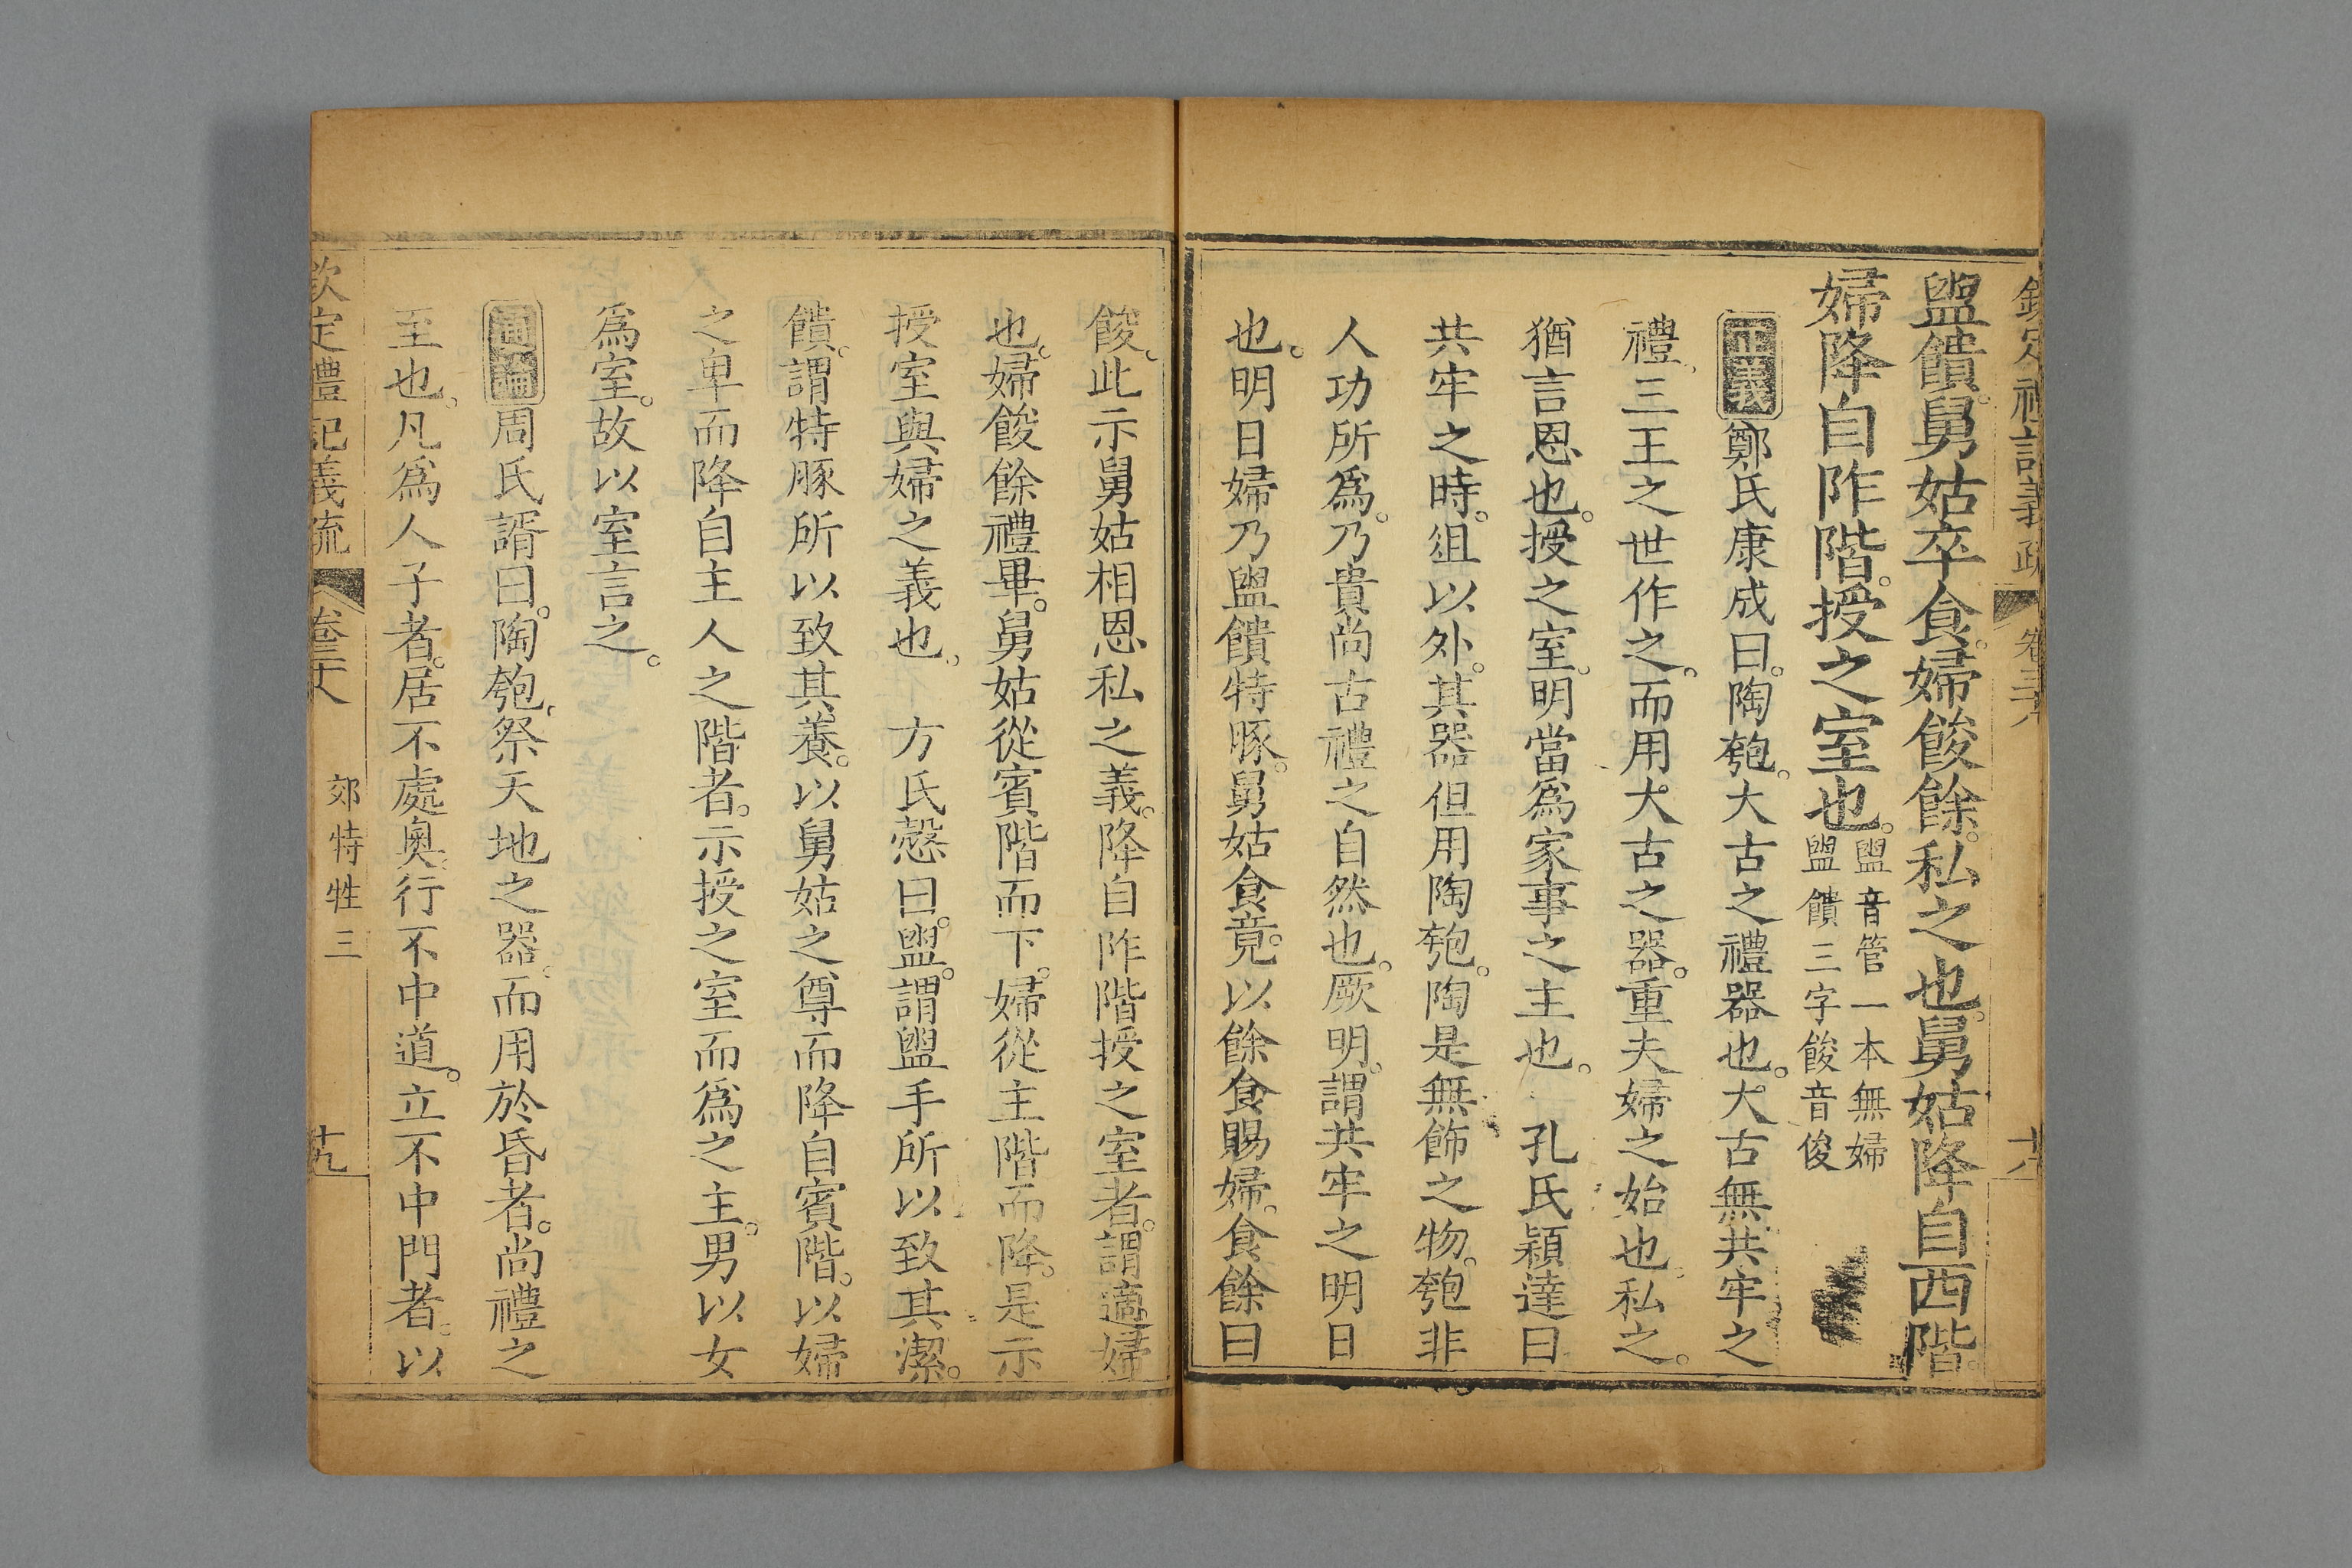 欽定禮記義疏 卷三十八 十八
盥饋。舅姑卒食。婦餕餘。私之也。舅姑降自西階。
婦降自阼階。授之室也。盥音管一本無婦
盥饋三字餕音俊
正義鄭氏康成曰。陶匏。大古之禮器也。大古無共牢之
禮、三王之世作之。而用大古之器。重夫婦之始也。私之。
猶言恩也。授之室。明當爲家事之主也。 孔氏穎達曰
共牢之時。俎以外。其器但用陶匏。陶是無飾之物。匏非
人功所爲。乃貴尚古禮之自然也。厥明。謂共牢之明日
也。明日婦乃盥饋特豚。舅姑食竟。以餘食賜婦。食餘曰
餕。此示舅姑相恩私之義。降自阼階授之室者。謂適婦
也。婦餕餘禮畢。舅姑從賓階而下。婦從主階而降。是示
授室與婦之義也。 方氏慤曰。盥。謂盥手所以致其潔。
饋。謂特豚所以致其養。以舅姑之尊而降自賓階。以婦
之卑而降自主人之階者。示授之室而爲之主。男以女
爲室。故以室言之。
通論周氏諝曰。陶匏、祭天地之器。而用於昏者。尚禮之
至也。凡爲人子者。居不處奧。行不中道。立不中門者。以
欽定禮記義疏 卷三十八 郊特牲三 十九